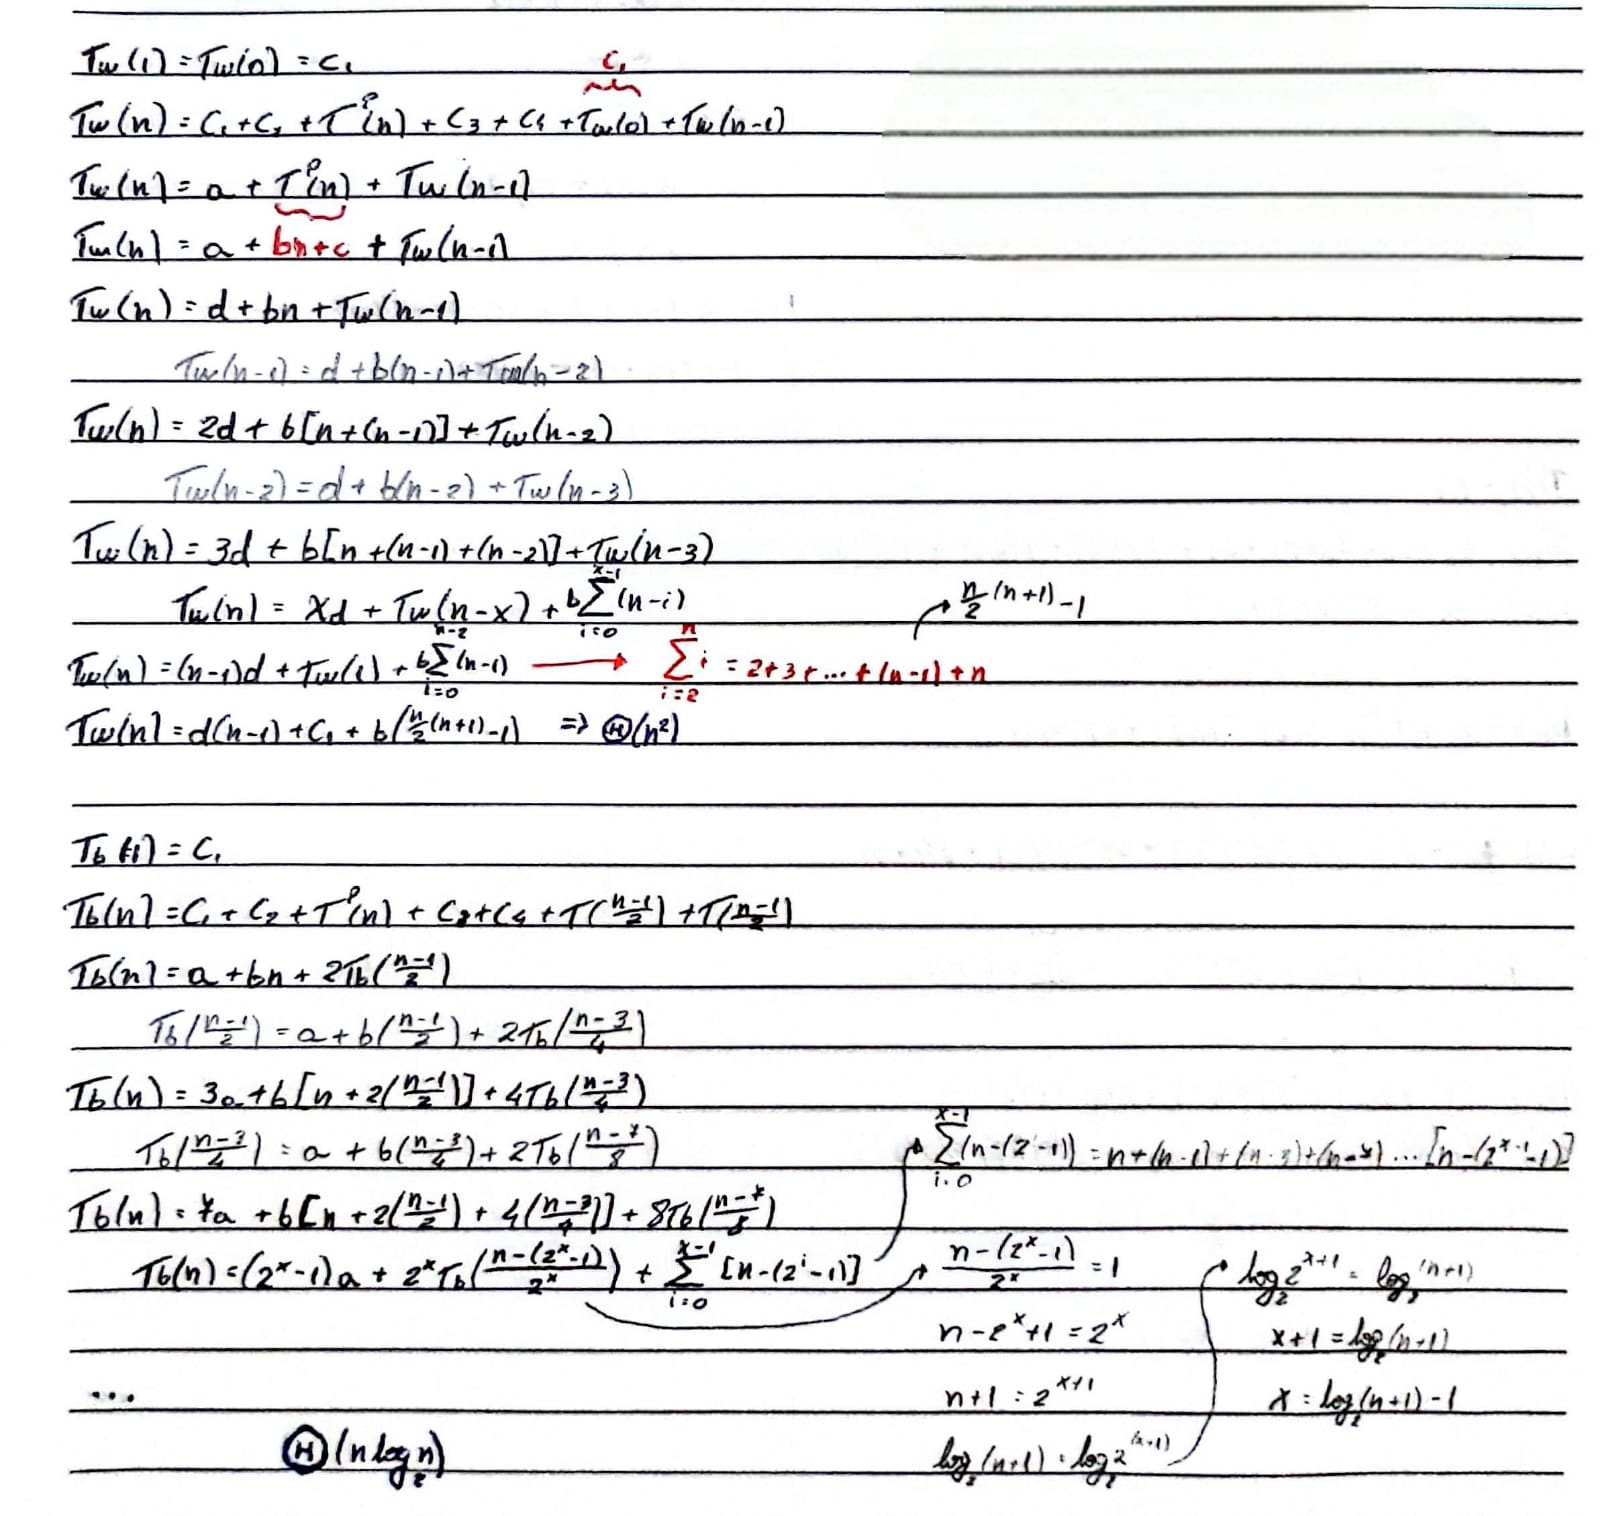 Tw(1) = Tw(0) = C₁
C₁
Tw(n) = C₁ + C₂ + Tᴾ(n) + C₃ + C₄ + Tw(0) + Tw(n-1)
Tw(n) = a + Tᴾ(n) + Tw(n-1)
Tw(n) = a + bn+c + Tw(n-1)
Tw(n) = d + bn + Tw(n-1)
Tw(n-1) = d + b(n-1) + Tw(n-2)
Tw(n) = 2d + b[n+(n-1)] + Tw(n-2)
Tw(n-2) = d + b(n-2) + Tw(n-3)
Tw(n) = 3d + b[n+(n-1)+(n-2)] + Tw(n-3)
Tw(n) = Xd + Tw(n-x) + b∑_{i=0}^{x-1}(n-i)
n/2 (n+1) - 1
Tw(n) = (n-1)d + Tw(1) + b∑_{i=0}^{n-2}(n-1) → ∑_{i=2}^{n} i = 2+3+...+(n-1)+n
Tw(n) = d(n-1) + C₁ + b(n/2(n+1)-1) => Θ(n²)
Tb(1) = C₁
Tb(n) = C₁ + C₂ + Tᴾ(n) + C₃ + C₄ + T((n-1)/2) + T((n-1)/2)
Tb(n) = a + bn + 2Tb((n-1)/2)
Tb((n-1)/2) = a + b((n-1)/2) + 2Tb((n-3)/4)
Tb(n) = 3a + b[n + 2((n-1)/2)] + 4Tb((n-3)/4)
Tb((n-3)/4) = a + b((n-3)/4) + 2Tb((n-7)/8)
∑_{i=0}^{x-1}(n-(2^i-1)) = n+(n-1)+(n-3)+(n-7)...[n-(2^{x-1}-1)]
Tb(n) = 7a + b[n + 2((n-1)/2) + 4((n-3)/4)] + 8Tb((n-7)/8)
Tb(n) = (2^x-1)a + 2^x Tb((n-(2^x-1))/2^x) + ∑_{i=0}^{x-1}[n-(2^i-1)]
(n-(2^x-1))/2^x = 1
n-2^x+1 = 2^x
n+1 = 2^{x+1}
log₂(n+1) = log₂2^{(x+1)}
log₂2^{x+1} = log₂(n+1)
x+1 = log₂(n+1)
x = log₂(n+1) - 1
...
Θ(n log₂ n)